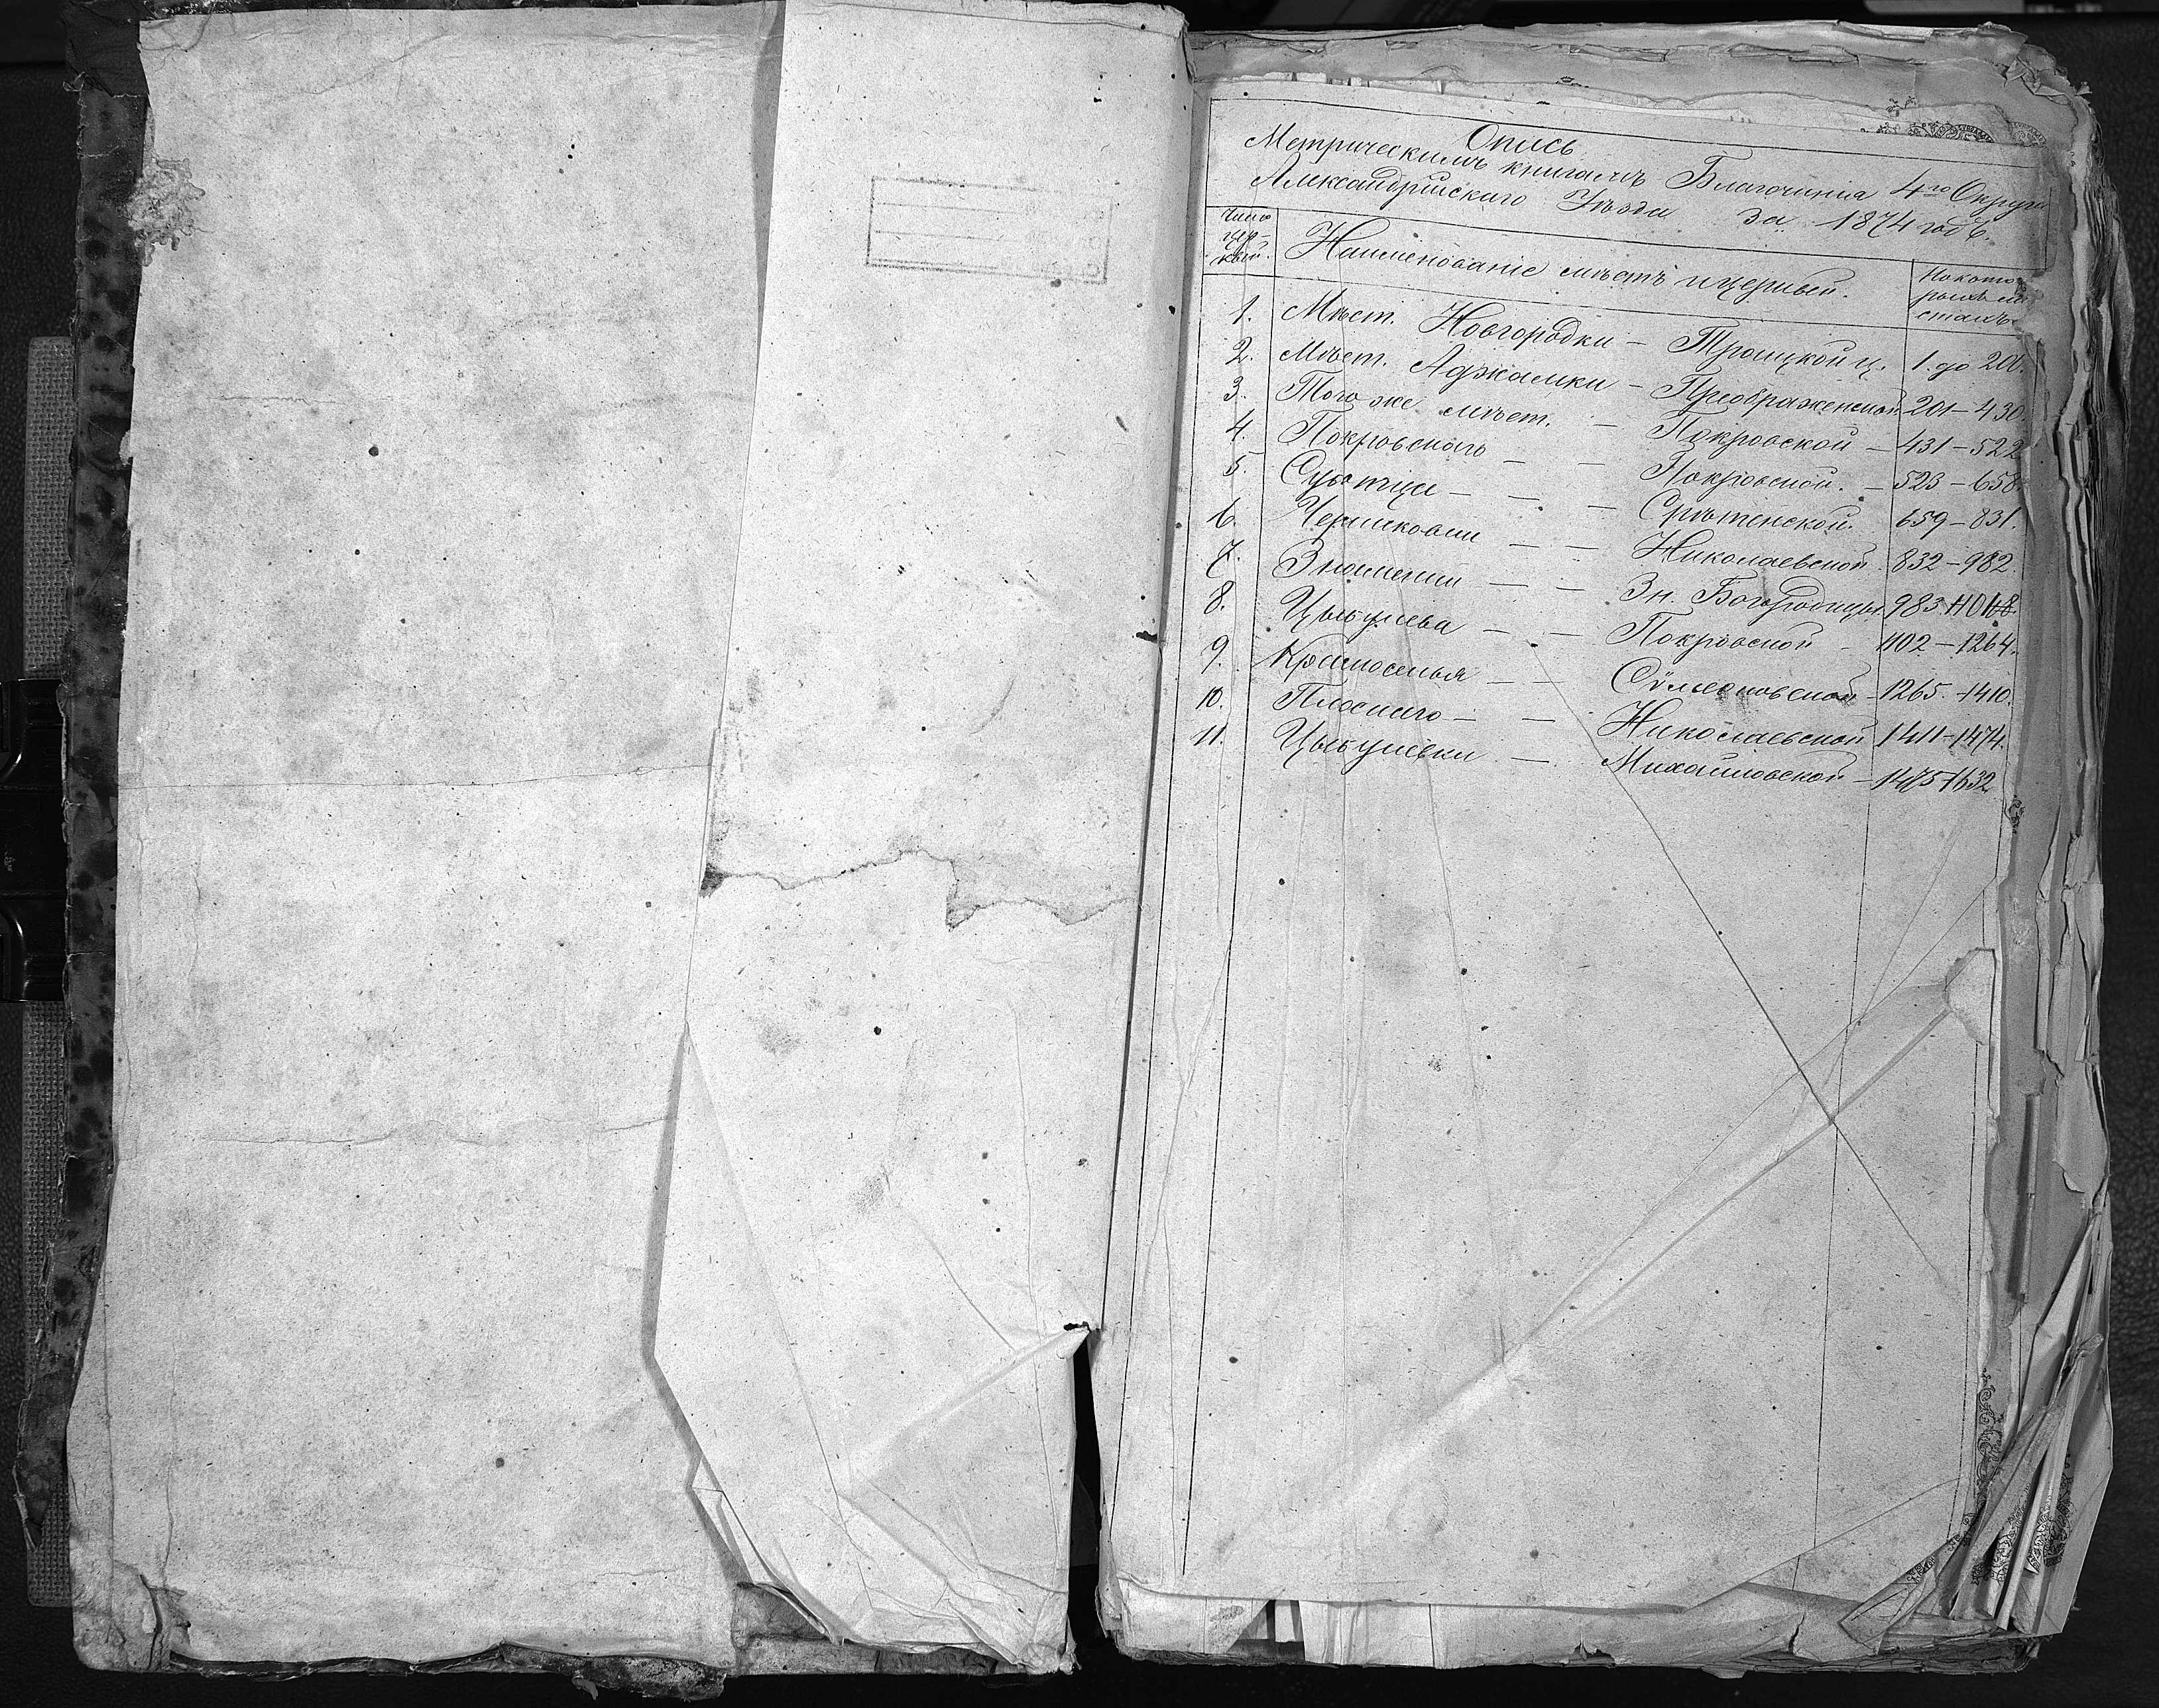 Опись
Метрическимъ книгамъ Благочинія 4го Округа
Александрійскаго Уѣзда за 1874 годъ.
Число цер-квей. Наименованіе мѣстъ и церквей. На которыхъ листахъ
1. Мѣст. Новгородки — Троицкой ц. 1. до 200.
2. Мѣст. Аджамки — Преображенской 201 — 430.
3. Того же мѣст. — Покровской — 431 — 522
4. Покровскаго — — Покровской. — 523 — 658.
5. Суботци — — — Срѣтенской. 659 — 831.
6. — — Николаевской. 832 — 982.
7. Знаменки — — Зн. Богородицы. 983
8. Цыбулева — — Покровской — 1102 — 1264.
9. — — Сѵмеоновской — 1265. — 1410.
10. Плоскаго — — Николаевской 1411 — 1474.
11. Цыбулевки — Михайловской — 1475 — 1632